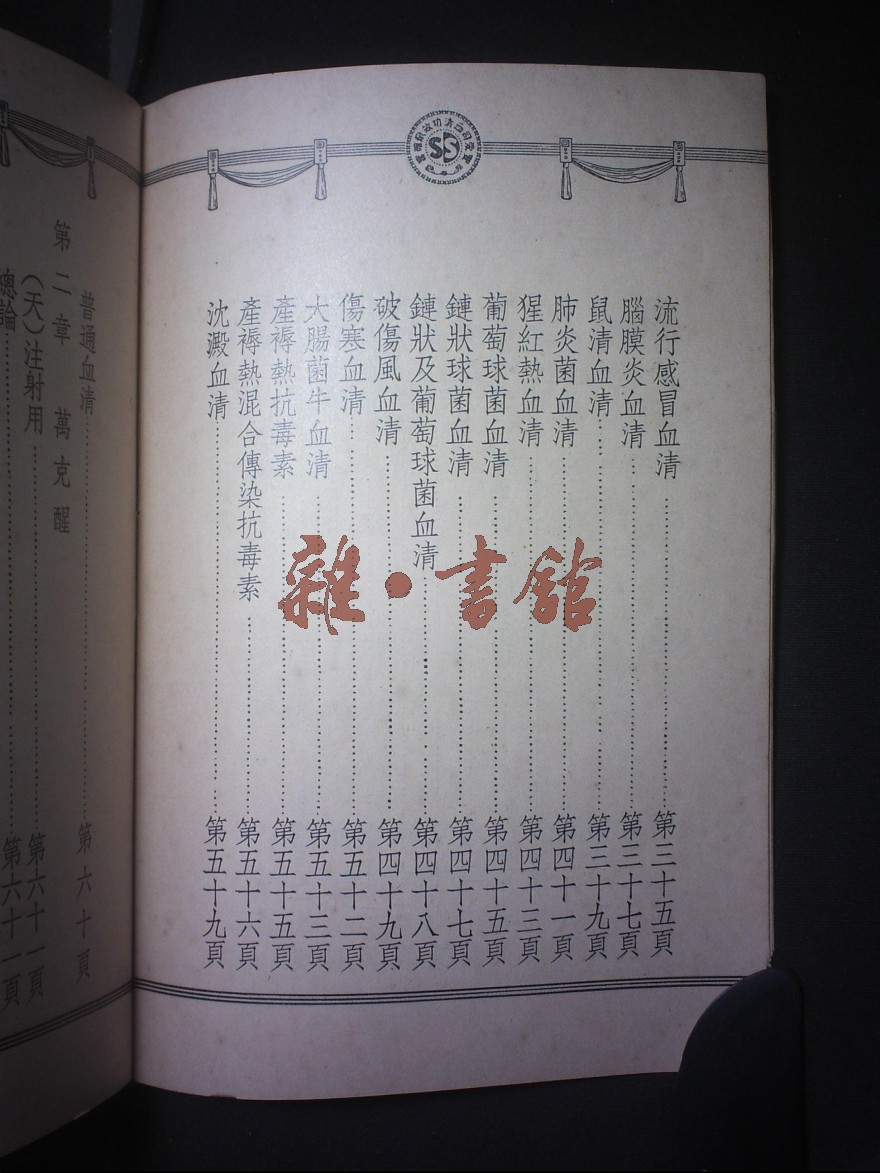 流行感冒血清 第三十五頁
腦膜炎血清 第三十七頁
鼠清血清 第三十九頁
肺炎菌血清 第四十一頁
猩紅熱血清 第四十三頁
葡萄球菌血清 第四十五頁
鏈狀球菌血清 第四十七頁
鏈狀及葡萄球菌血清 第四十八頁
破傷風血清 第四十九頁
傷寒血清 第五十二頁
大腸菌牛血清 第五十三頁
產褥熱抗毒素 第五十五頁
產褥熱混合傳染抗毒素 第五十六頁
沈澱血清 第五十九頁
普通血清 第六十頁
第二章 萬克醒
(天)注射用 第六十一頁
總論 第六十一頁
雜·書館
SS